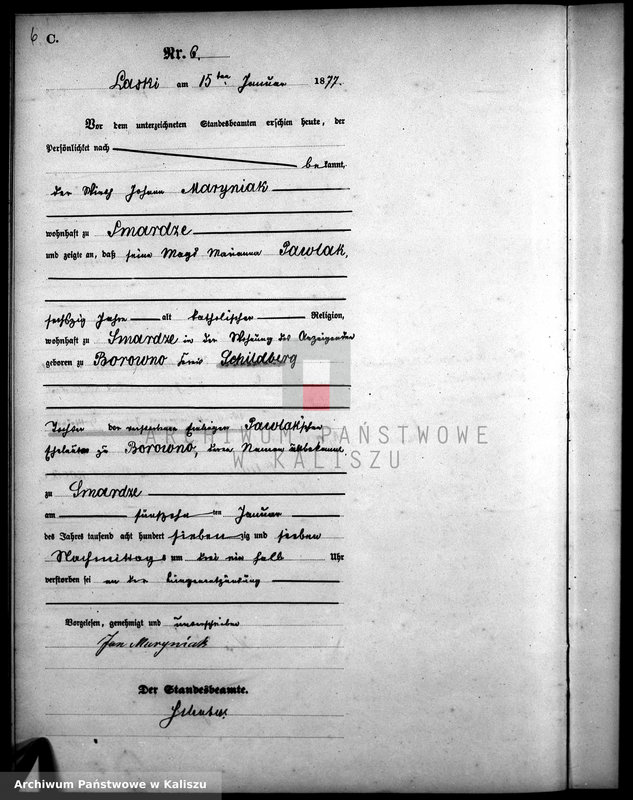 6 C.
Nr. 6.
Laski am 15ten Januar 1877.
Vor dem unterzeichneten Standesbeamten erschien heute, der
Persönlichkeit nach
bekannt,
der Wirth Johann Maryniak
wohnhaft zu Smardze
und zeigte an, daß seine Magd Marianna Pawlak,
sechszig Jahre alt katholischer Religion,
wohnhaft zu Smardze in der Wohnung des Anzeigenden
geboren zu Borowno Kreis Schildberg
Tochter der verstorbenen Pawlak'schen
Eheleute zu Borowno, deren Namen unbekannt
zu Smardze
am fünfzehnten Januar
des Jahres tausend acht hundert siebenzig und sieben
Nachmittags um drei ein halb Uhr
verstorben sei an der Lungenentzündung
Vorgelesen, genehmigt und unterschrieben
Jan Maryniak
Der Standesbeamte.
ARCHIWUM PAŃSTWOWE
W KALISZU
Archiwum Państwowe w Kaliszu